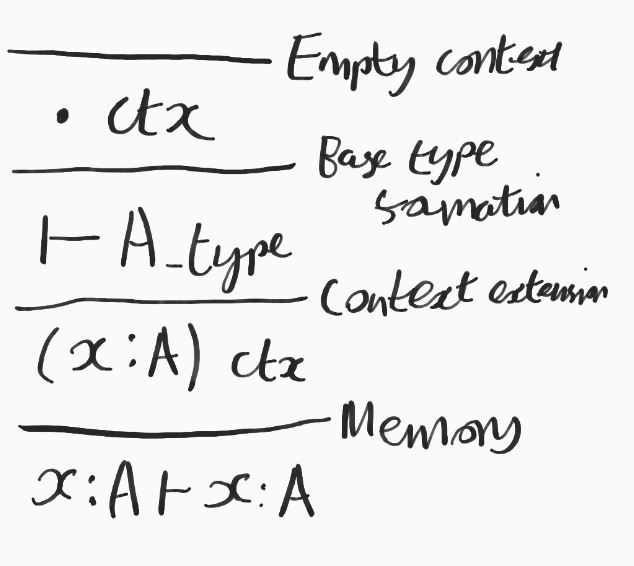 Empty context
· ctx
Base type
formation
⊢ A_type
Context extension
(x:A) ctx
Memory
x:A ⊢ x:A